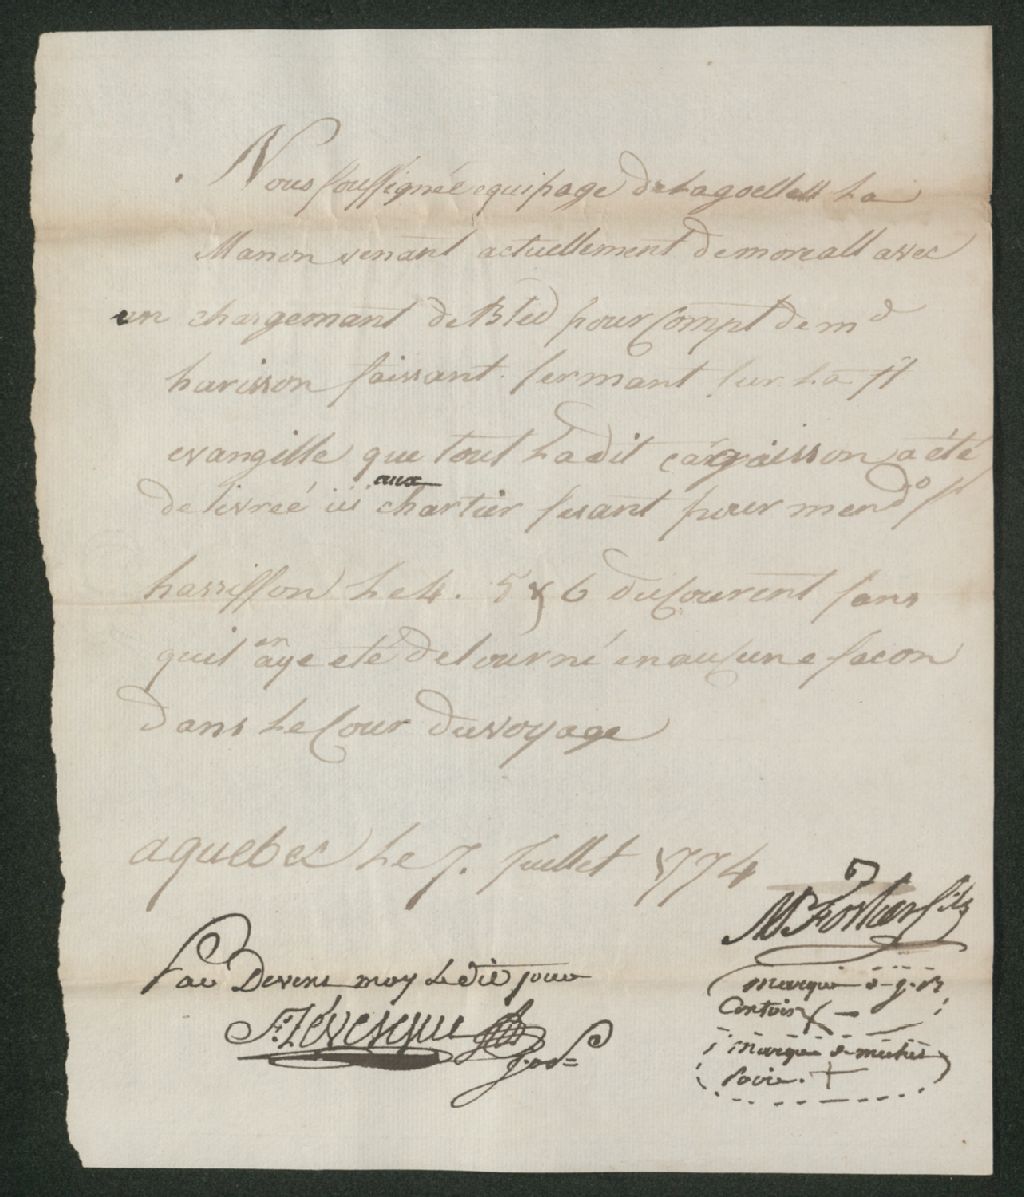 Nous soussignée equipage de La goellett La
Manon venant actuellement de moreall avec
un chargemant de Bled pour Compt de md
harisson faissant sermant sur La st
evangille que tout Ladit cargaisson a été
delivrée ici aux chartier fesant pour mendo sr
harrisson Le 4. 5 & 6 du Courent sans
quil en aye eté detourné en auCune facon
dans Le Cour du voyage
a quebec Le 7. Juillet 1774
M Fortier fils
fait Devent moy Le dit jour
Fs Lévesque
marque d
Contois X
marque de michel
+